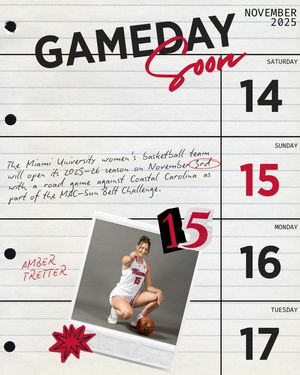 NOVEMBER
2025
GAMEDAY
Soon
SATURDAY
14
The Miami University women's basketball team
will open its 2025-26 season on November 3rd
with a road game against Coastal Carolina as
part of the MAC-Sun Belt Challenge.
SUNDAY
15
15
AMBER
TRETTER
Miami
15
MONDAY
16
TUESDAY
17